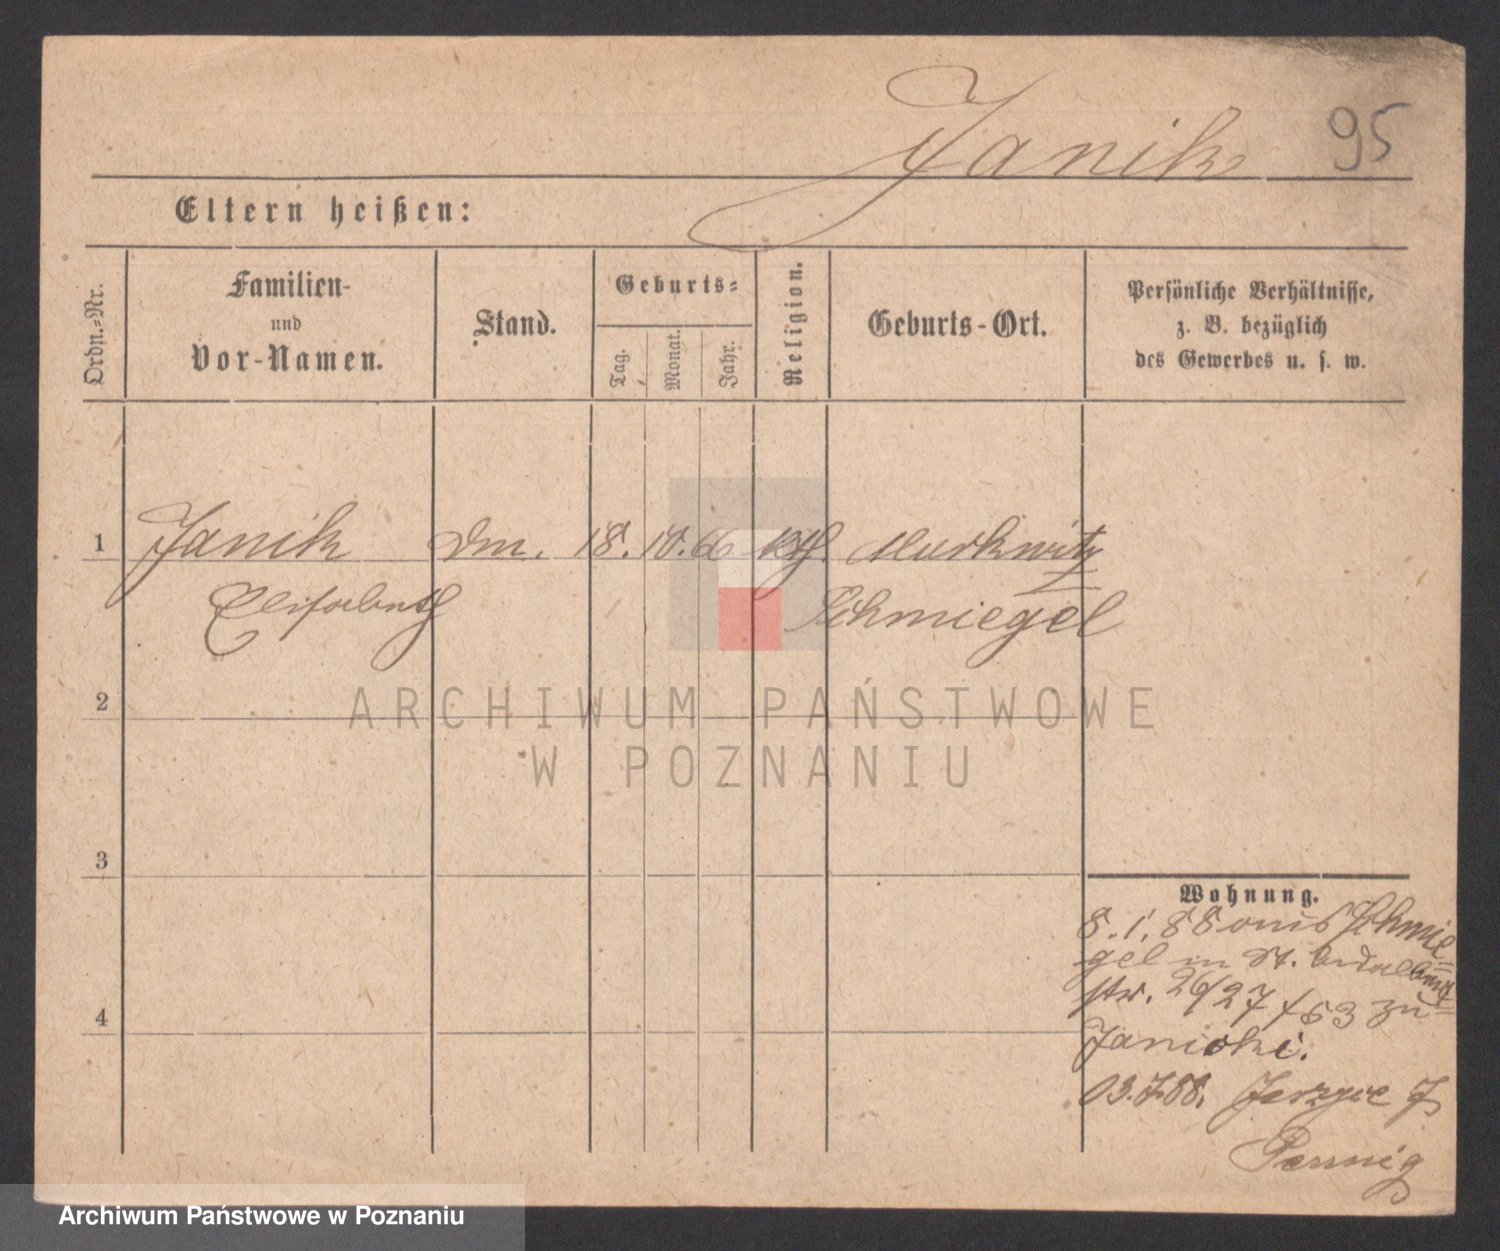 Janik 95
Eltern heißen:
Ordn.=Nr.
Familien-
und
Vor-Namen.
Stand.
Geburts=
Tag.
Monat.
Jahr.
Religion.
Geburts-Ort.
Persönliche Verhältnisse,
z. B. bezüglich
des Gewerbes u. s. w.
1 Janik Dm. 18. 10. 66 kth. Murkwitz
Elisabeth Schmiegel
2
3
Wohnung.
8. 1. 88 aus Schmie-
gel in St. Adalbert
str. 26/27 / 53 zu
Janicki.
4
03. 7. 88.
ARCHIWUM PAŃSTWOWE
W POZNANIU
Archiwum Państwowe w Poznaniu